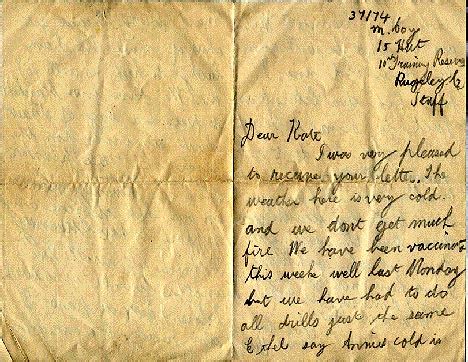 37/74
M. Day
15 Hut
10th Training Reserve
Rugeley
Staff
Dear Kate
I was very pleased
to receive your lett.. The
weather here is very cold.
and we dont get much
fire We have been
this week well last Monday
but we have had to do
all drills just the same
Ethel say Annies cold is